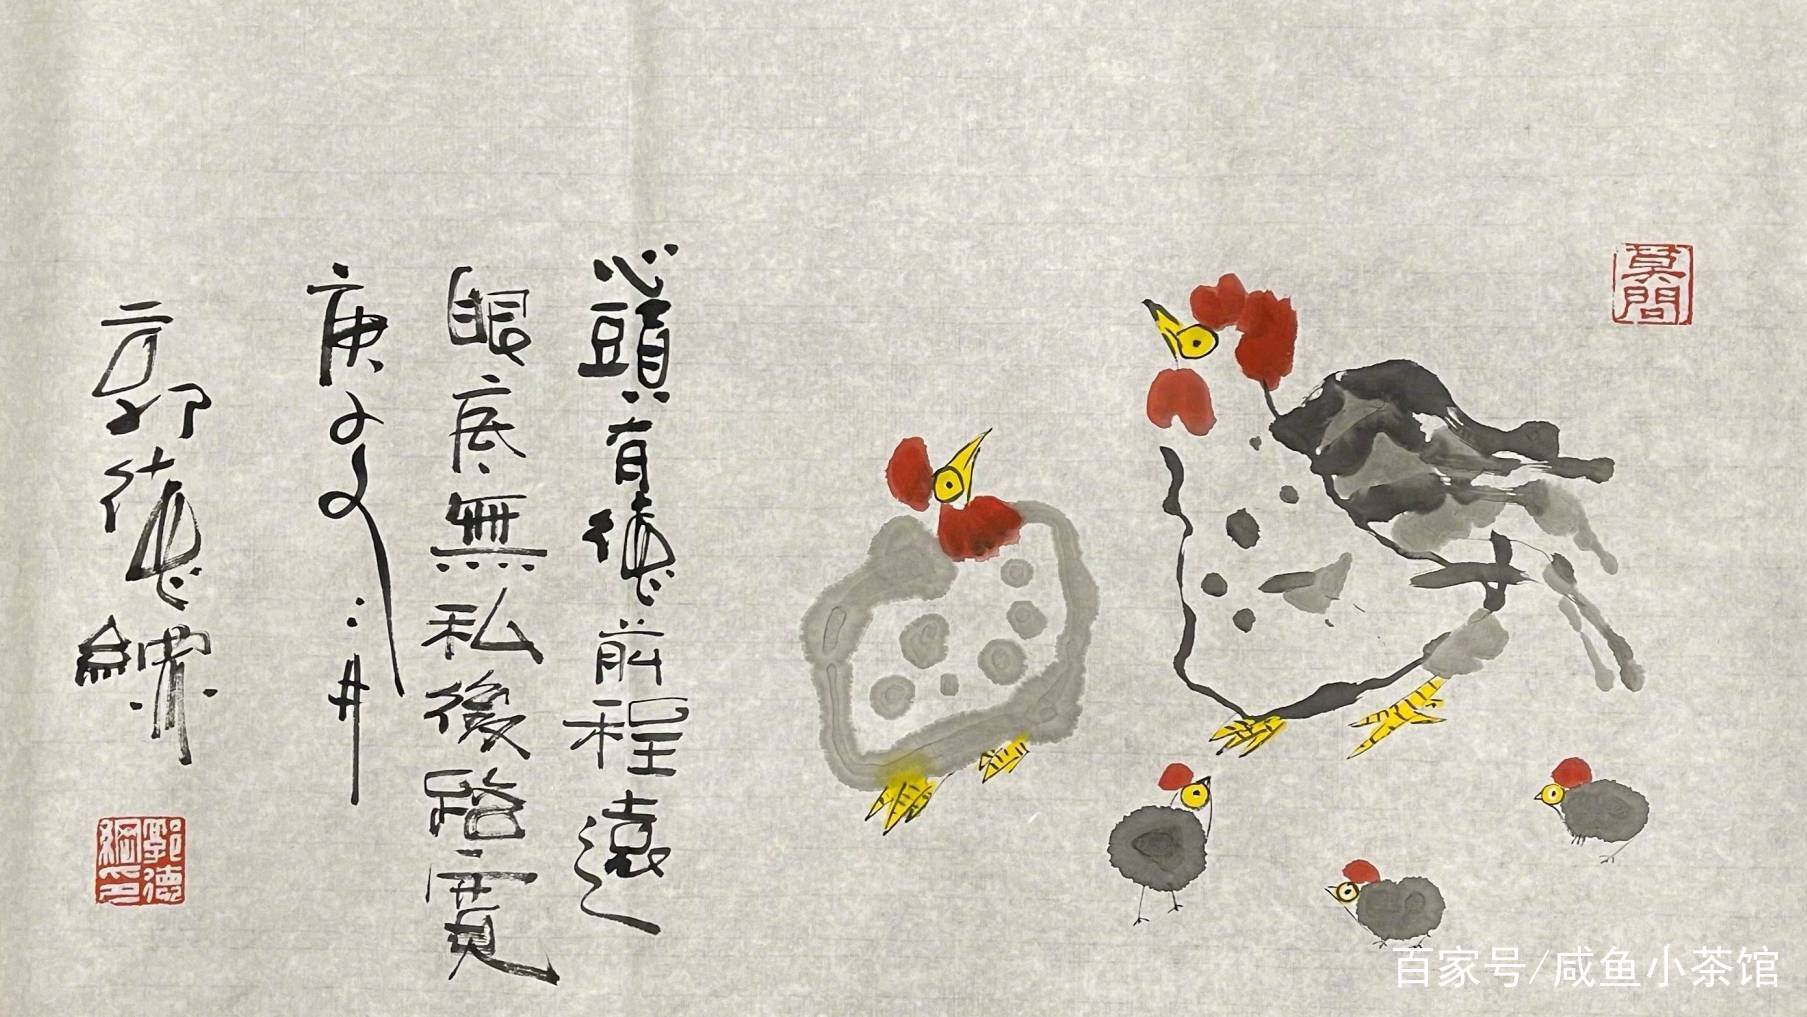 莫問
心頭有德前程遠
眼底無私後路寬
庚子夏
郭德綱
郭德綱印
百家号/咸鱼小茶馆